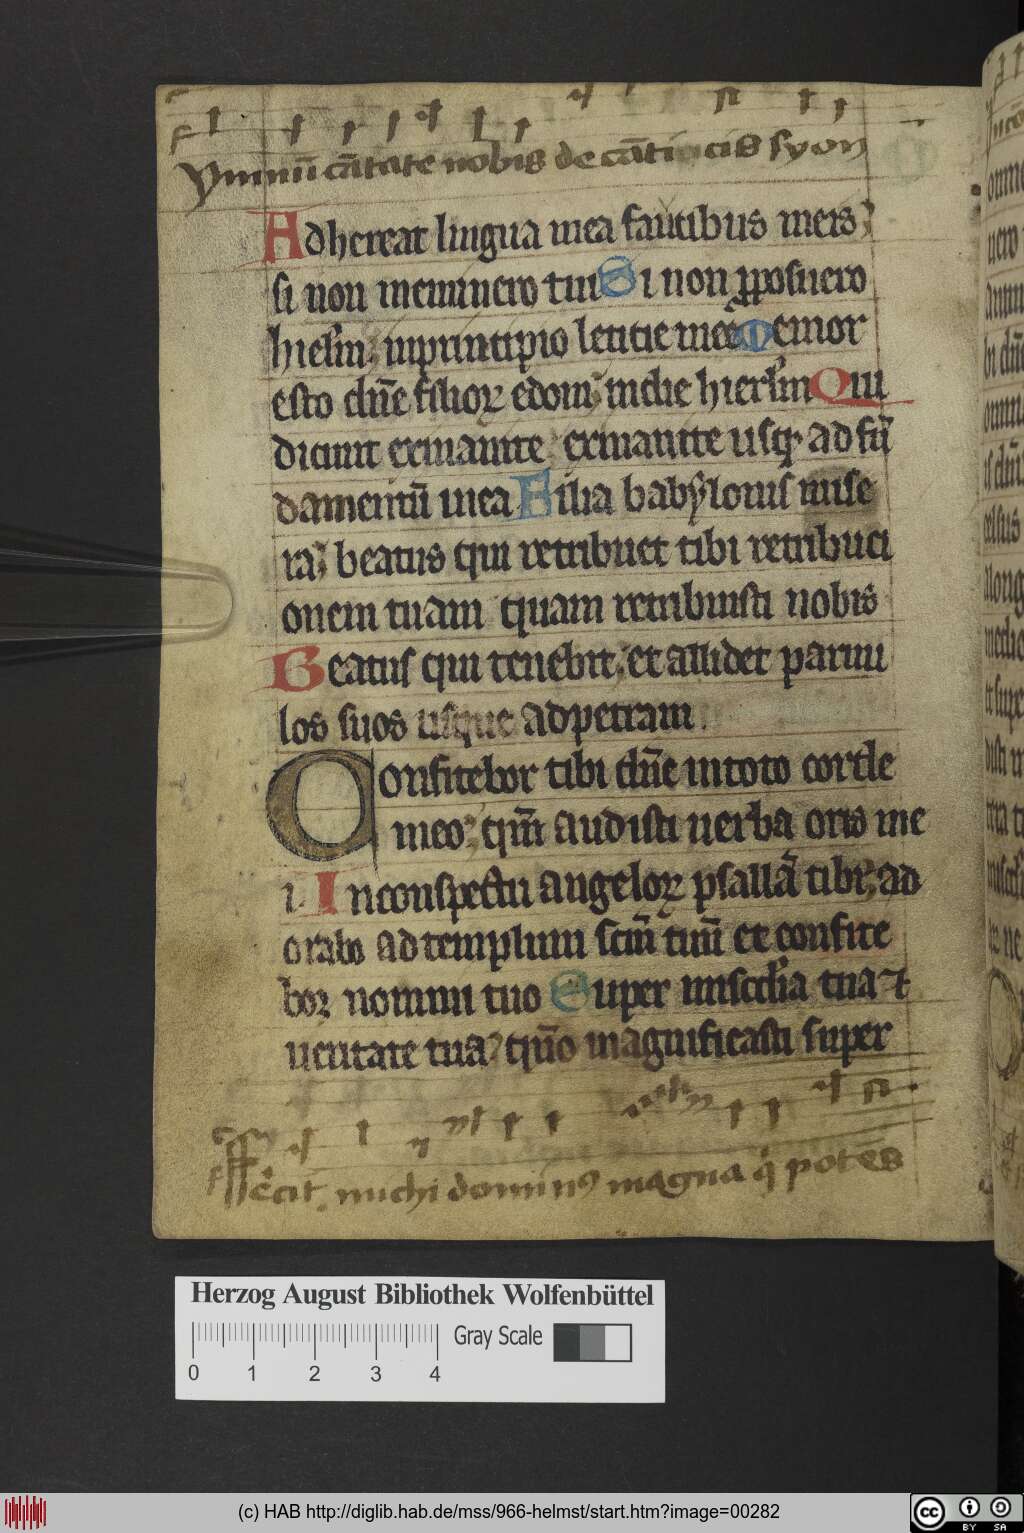 Ymnum̄ cātate nobis de cāticis syon
Adhereat lingua mea faucibus meis;
si non meminero tui Si non p̱posuero
hierl̄m; inprincipio leticie mee Memor
esto dn̄e filioꝝ edom; indie hierl̄m Qui
dicunt exinanite; exinanite usq; ad fū
damentū inea Filia babylonis mise
ra; beatus qui retribuet tibi retribuci
onem tuam quam retribuisti nobis
Beatus qui tenebit; et allidet paruu
los suos usque adpetram
Confitebor tibi dn̄e intoto corde
meo; qm̄ audisti uerba oris me
i. Inconspectu angeloꝝ psallā tibi; ad
orabo ad templum scm̄ tuū et confite
bor nomini tuo Super misc̄dia tua ⁊
ueritate tua; qm̄o magnificasti super
Fecit michi dominꝰ magna q̇ potēs
Herzog August Bibliothek Wolfenbüttel
Gray Scale
0 1 2 3 4
(c) HAB http://diglib.hab.de/mss/966-helmst/start.htm?image=00282
cc BY SA